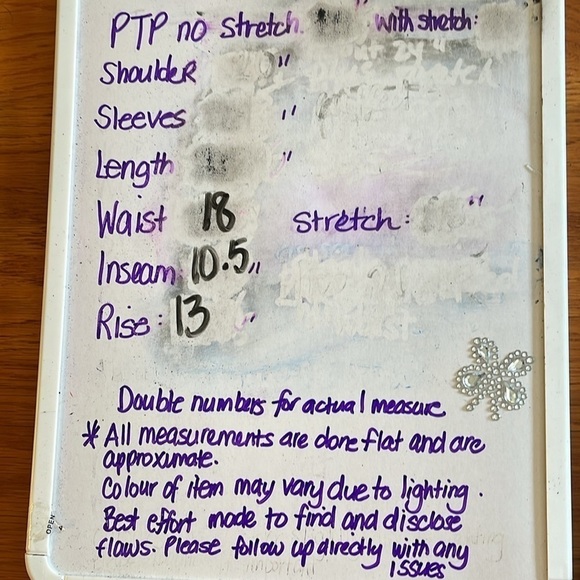 PTP no stretch " with stretch:
Shoulder "
Sleeves "
Length "
Waist 18 Stretch: "
Inseam: 10.5"
Rise: 13 "
Double numbers for actual measure
* All measurements are done flat and are
approximate.
Colour of item may vary due to lighting.
Best effort made to find and disclose
flaws. Please follow up directly with any
issues
OPEN